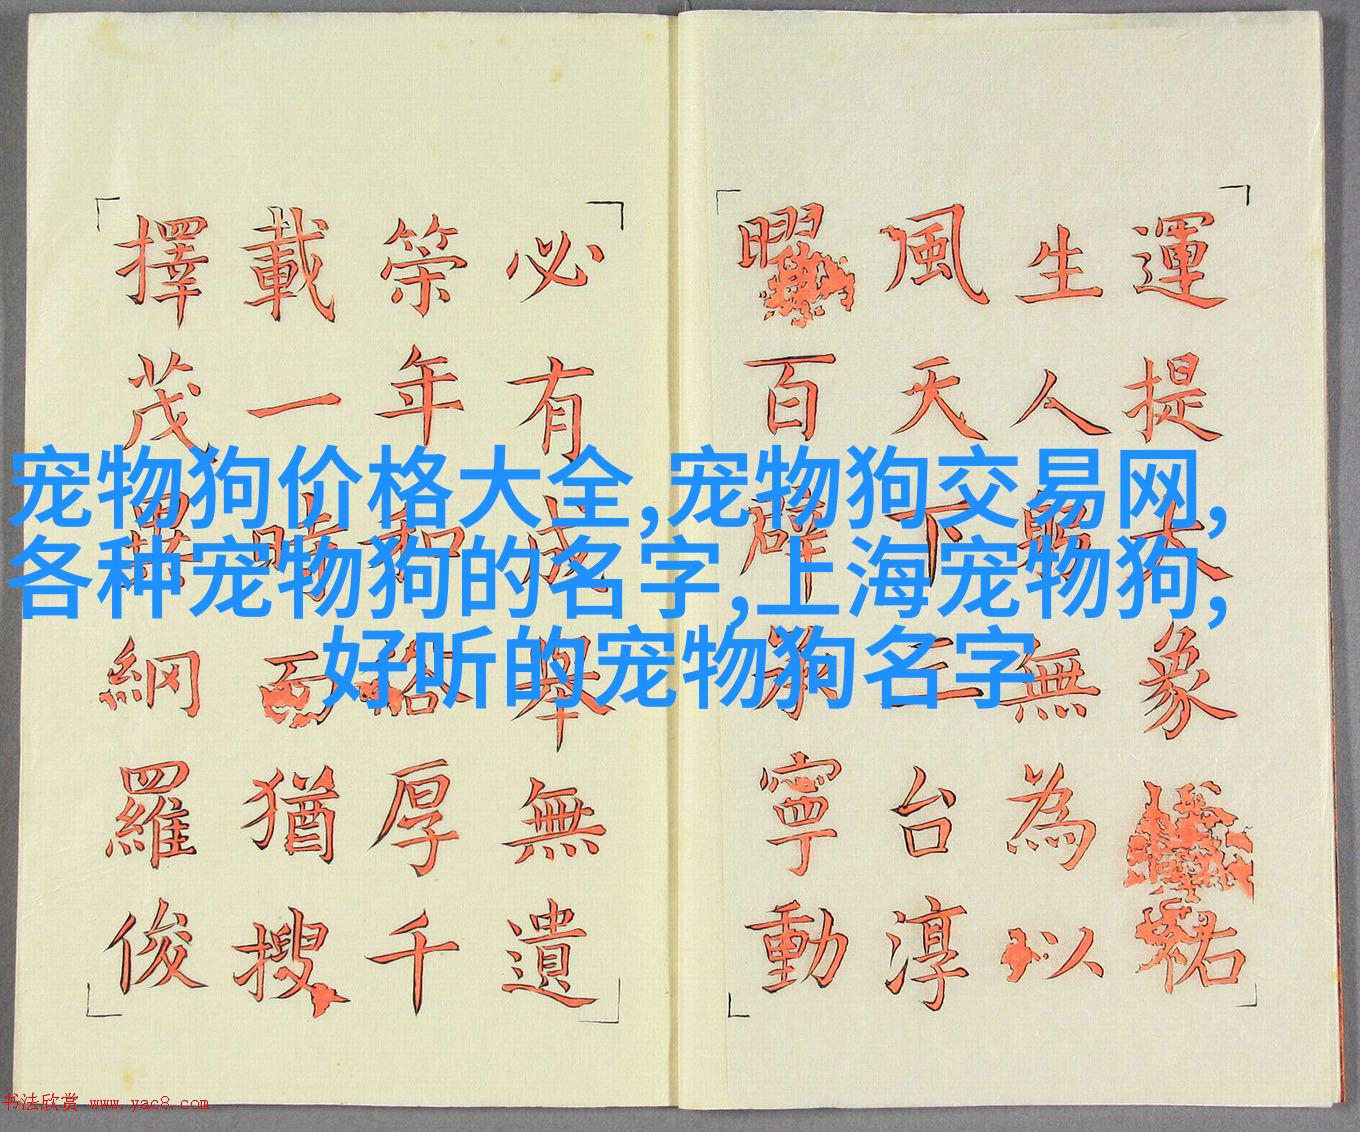 宠物狗价格大全,宠物狗交易网,
各种宠物狗的名字,上海宠物狗,
好听的宠物狗名字
運提大象祐
生人無為以
風天下三台淳
百辟寧動
必有成舉無遺
年和厚千
載一時而猶搜
擇茂異網羅俊
书法欣赏 www.yac8.com